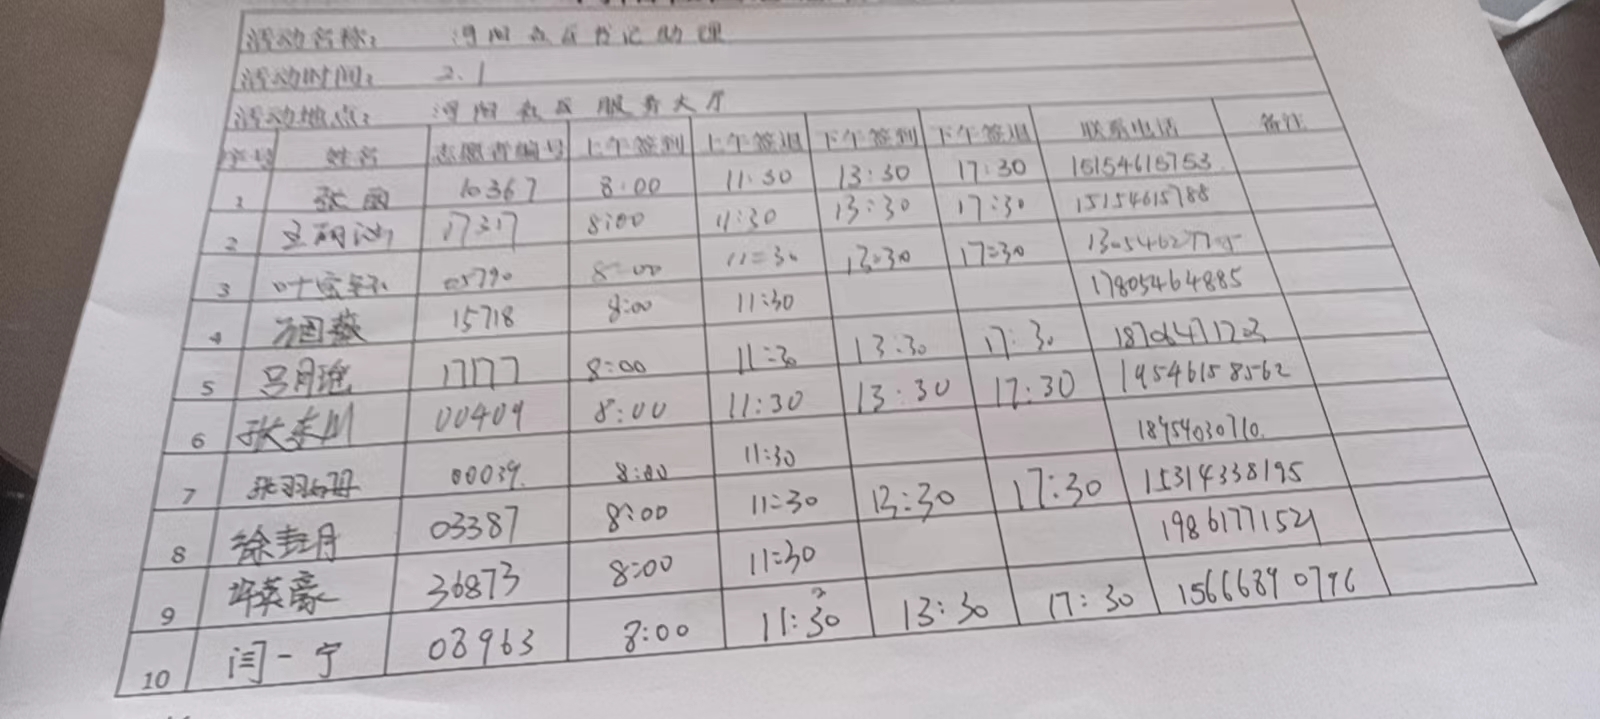 活动名称： 河闸社区书记助理
活动时间： 2.1
活动地点： 河闸社区服务大厅
序号 姓名 志愿者编号 上午签到 上午签退 下午签到 下午签退 联系电话 备注
1 张雨 10367 8:00 11:30 13:30 17:30 15154615753
2 17317 8:00 11:30 13:30 17:30 15154615788
3 05790 8:00 11:30 13:30 17:30
4 15718 8:00 11:30 17805464885
5 吕月 17177 8:00 11:30 13:30 17:30
6 张东川 00409 8:00 11:30 13:30 17:30 19546158562
7 00039 8:00 11:30 18954030710
8 徐 月 03387 8:00 11:30 13:30 17:30 15314338195
9 许英豪 36873 8:00 11:30 19861771521
10 闫一宁 08963 8:00 11:30 13:30 17:30 15666890796